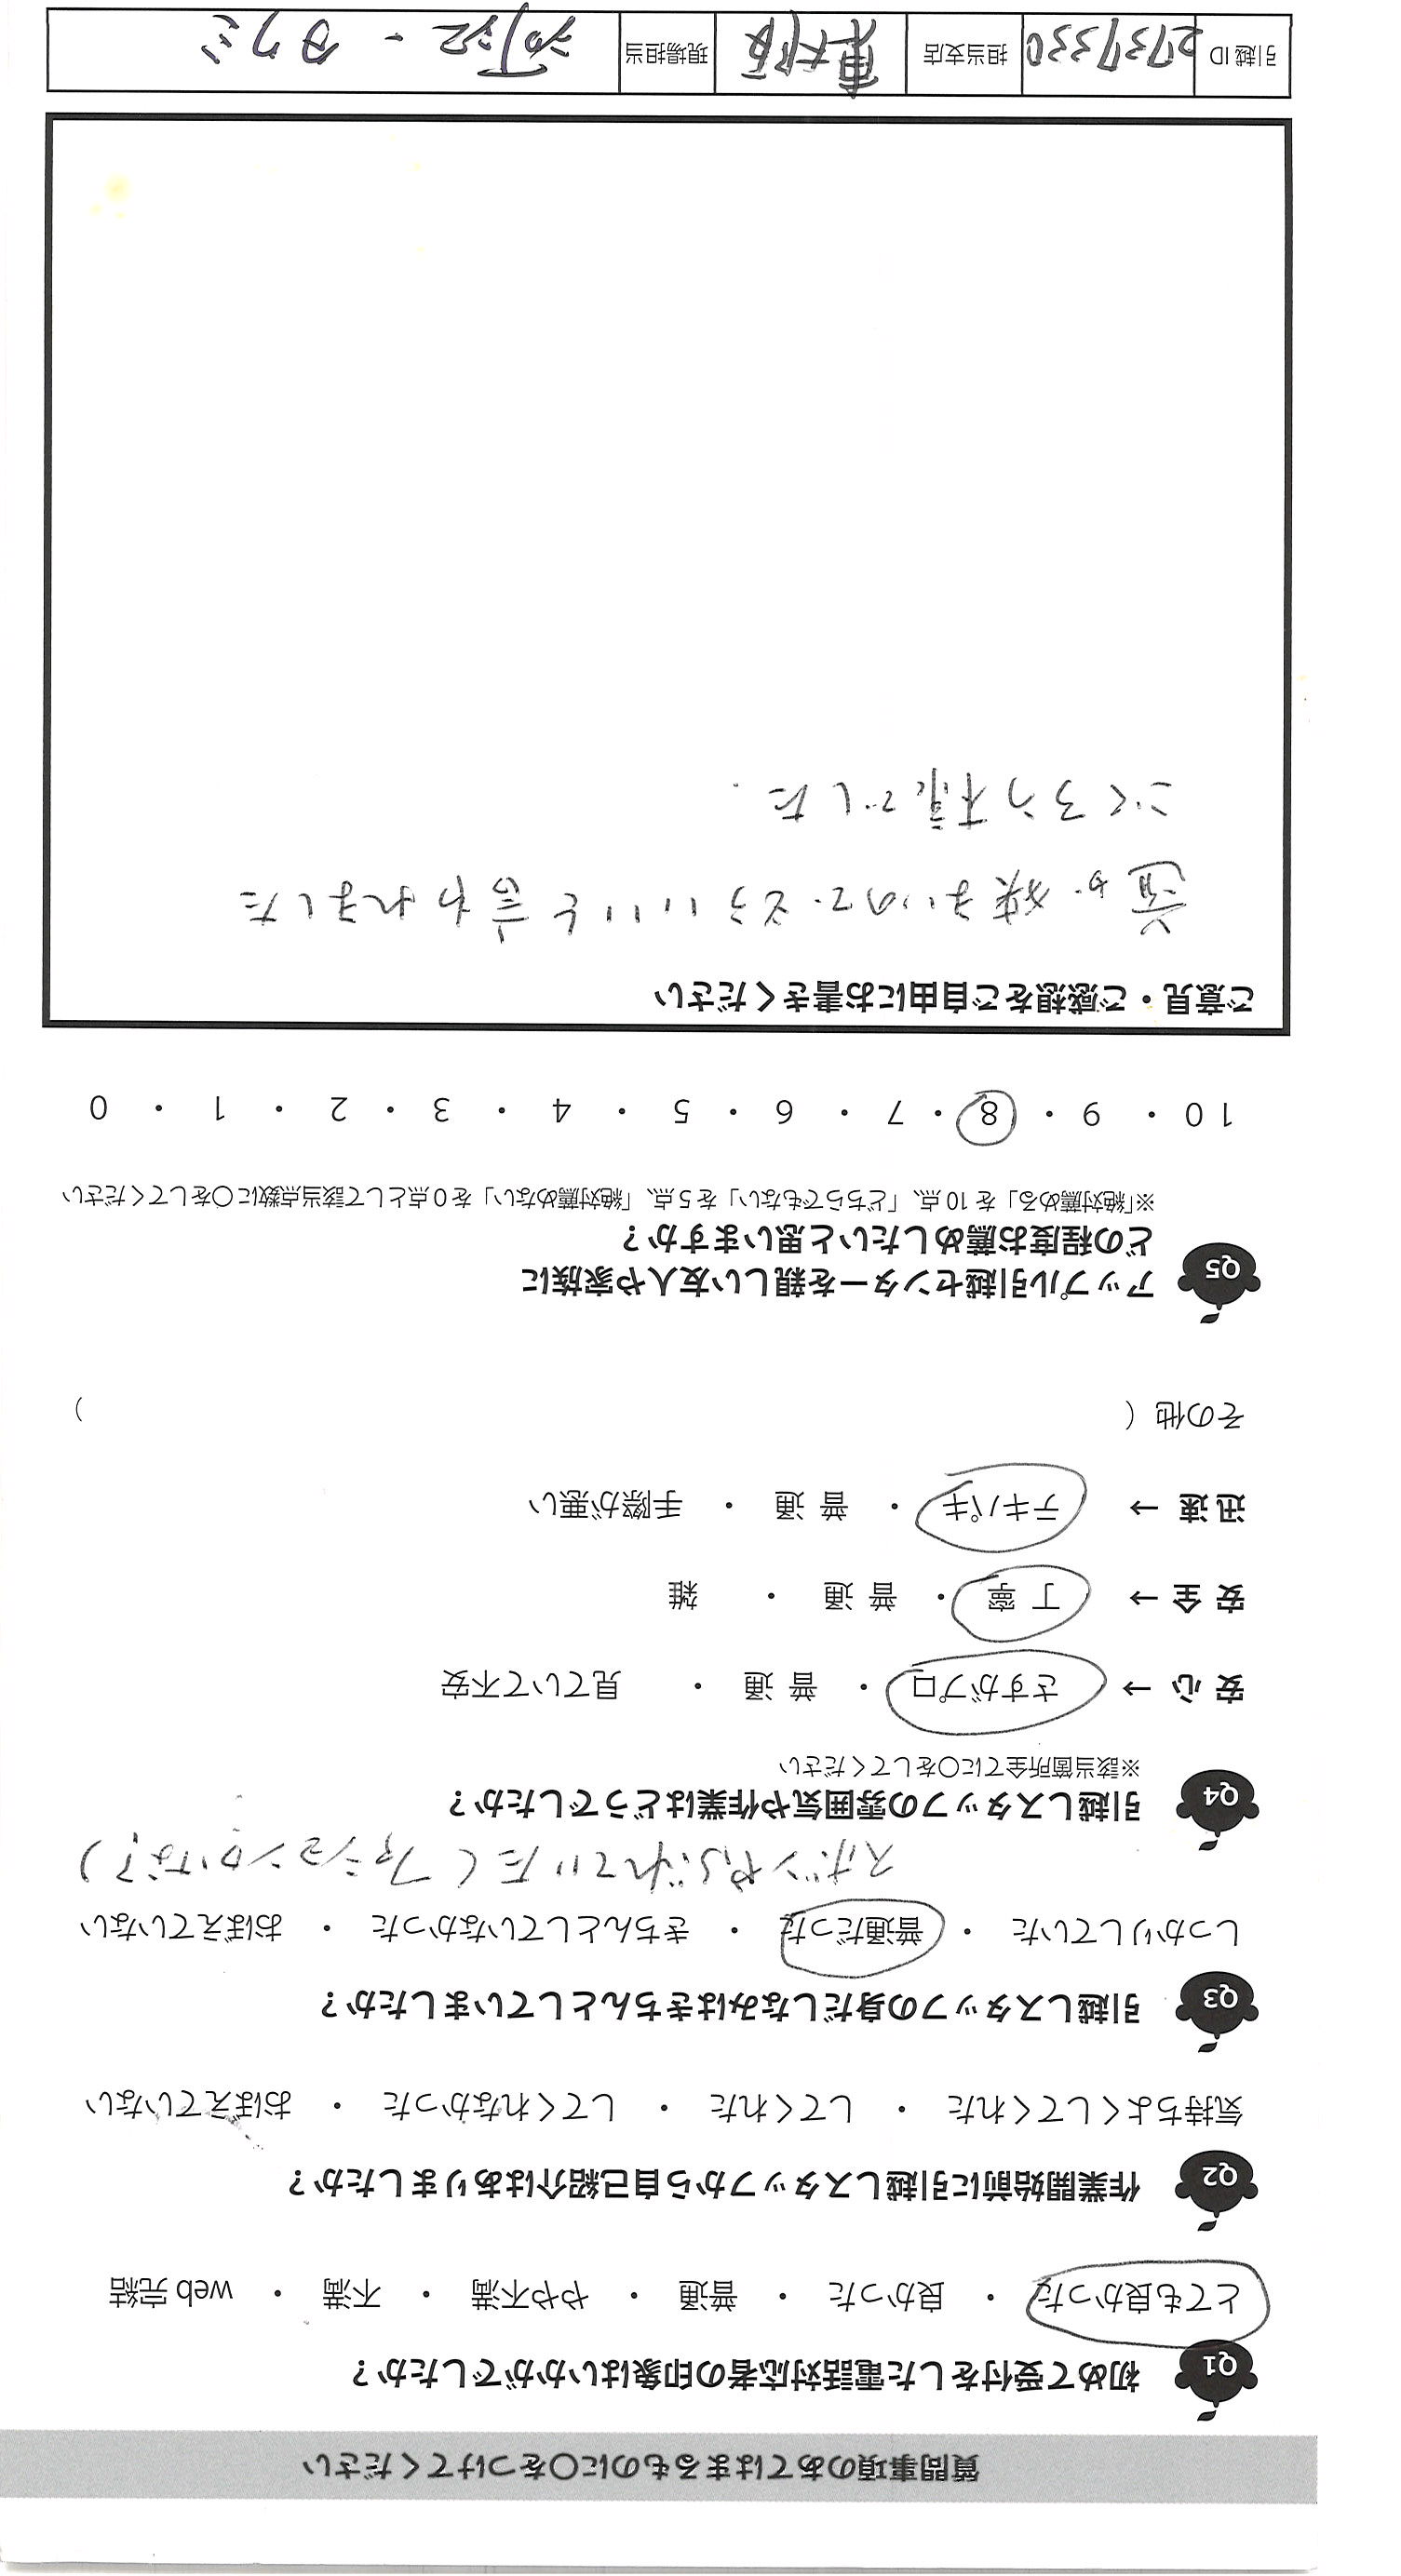 質問事項のあてはまるものに〇をつけてください
Q1 初めて受付をした電話対応者の印象はいかがでしたか？
とても良かった ・ 良かった ・ 普通 ・ やや不満 ・ 不満 ・ web 完結
Q2 作業開始前に引越しスタッフから自己紹介はありましたか？
気持ちよくしてくれた ・ してくれた ・ してくれなかった ・ おぼえていない
Q3 引越しスタッフの身だしなみはきちんとしていましたか？
しっかりしていた ・ 普通だった ・ きちんとしていなかった ・ おぼえていない
ズボンやぶれていた（ファションかな？）
Q4 引越しスタッフの雰囲気や作業はどうでしたか？
※該当箇所全てに〇をしてください
安 心 → さすがプロ ・ 普 通 ・ 見ていて不安
安 全 → 丁 寧 ・ 普 通 ・ 雑
迅 速 → テキパキ ・ 普 通 ・ 手際が悪い
その他（ ）
Q5 アップル引越センターを親しい友人や家族に
どの程度お薦めしたいと思いますか？
※「絶対薦める」を 10 点、「どちらでもない」を 5 点、「絶対薦めない」を 0 点として該当点数に〇をしてください
10 ・ 9 ・ 8 ・ 7 ・ 6 ・ 5 ・ 4 ・ 3 ・ 2 ・ 1 ・ 0
ご意見・ご感想をご自由にお書きください
道が狭いのでそういいと言われました
ごくろう様でした.
引越 ID 2737330 担当支店 東大阪 現場担当